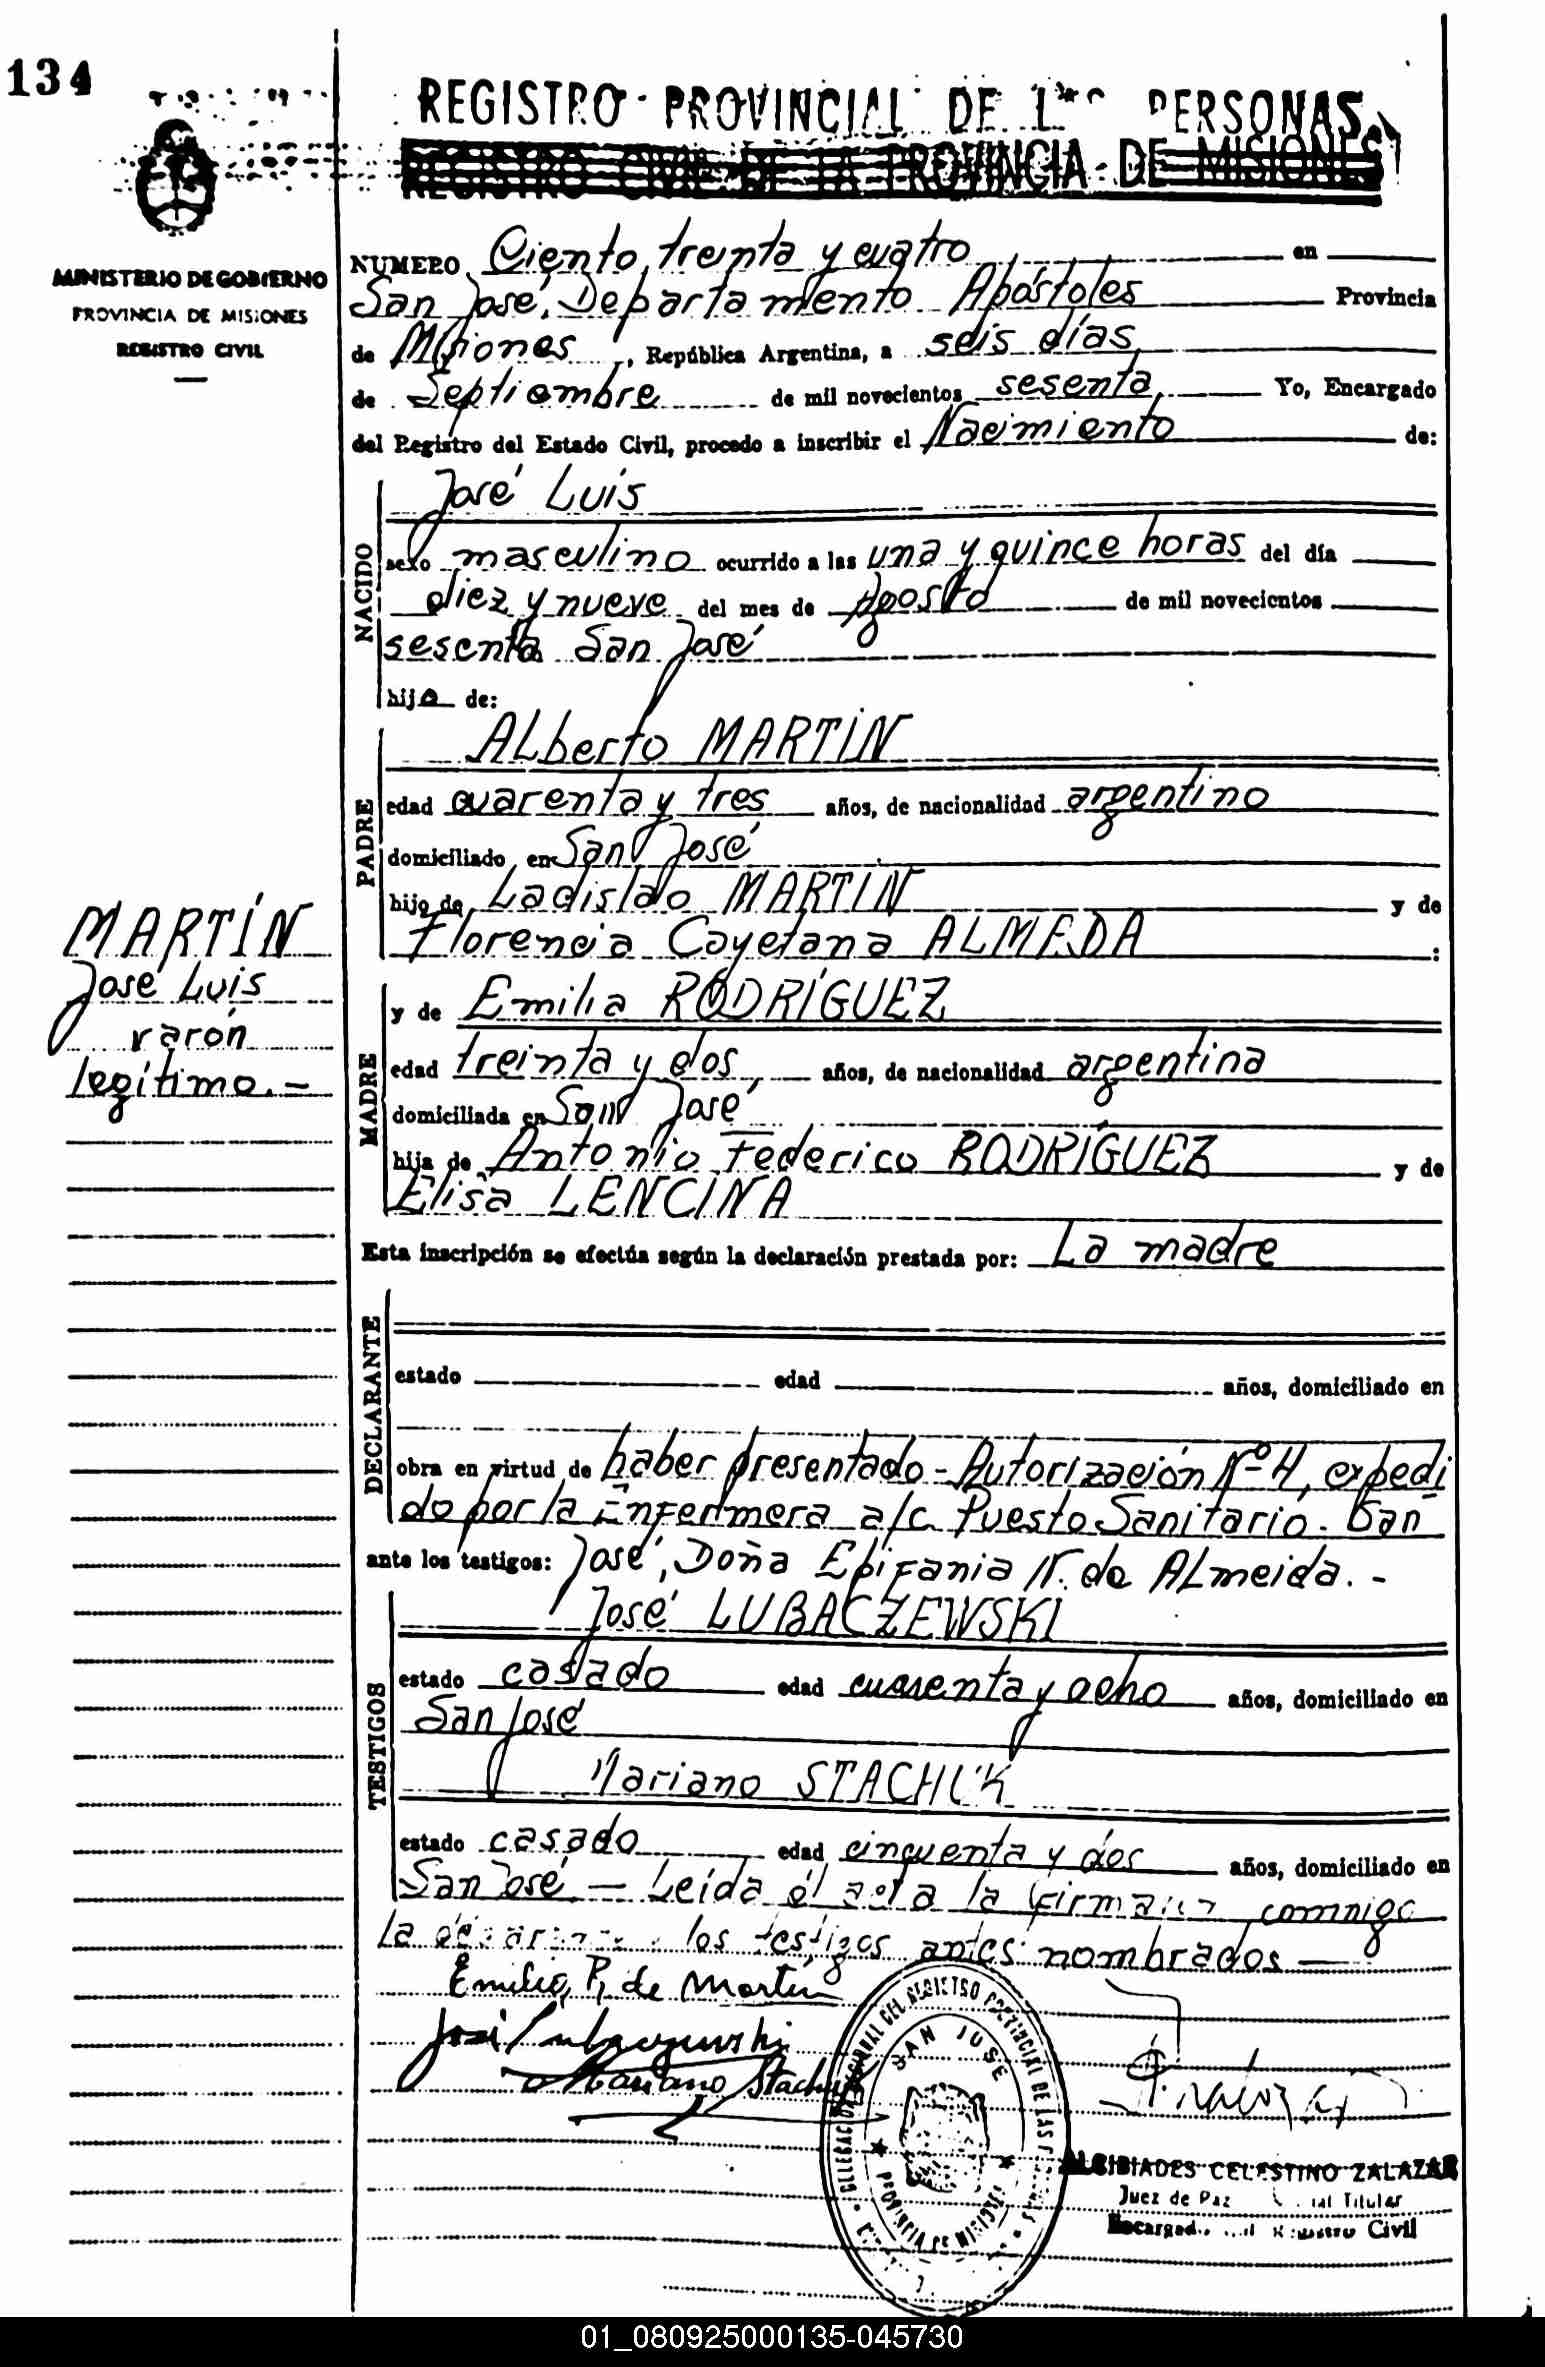 134
REGISTRO PROVINCIAL DE PERSONAS
REGISTRO CIVIL DE LA PROVINCIA DE MISIONES
MINISTERIO DE GOBIERNO
PROVINCIA DE MISIONES
REGISTRO CIVIL
NUMERO Ciento treinta y cuatro en
San José, Departamento Apóstoles Provincia
de Misiones, República Argentina, a seis días
de Septiembre de mil novecientos sesenta Yo, Encargado
del Registro del Estado Civil, procedo a inscribir el Nacimiento de:
NACIDO
José Luis
sexo masculino ocurrido a las una y quince horas del día
diez y nueve del mes de Agosto de mil novecientos
sesenta San José
hijo de:
PADRE
ALberto MARTÍN
edad cuarenta y tres años, de nacionalidad argentino
domiciliado en San José
hijo de Ladislao MARTIN y de
Florencia Cayetana ALMEDA :
MARTÍN
José Luis
varón
legítimo.-
MADRE
y de Emilia RODRÍGUEZ
edad treinta y dos años, de nacionalidad argentina
domiciliada en San José
hija de Antonio Federico RODRÍGUEZ y de
Elisa LENCINA
Esta inscripción se efectúa según la declaración prestada por: La madre
DECLARANTE
estado edad años, domiciliado en
obra en virtud de haber presentado - Autorización Nº 4, expedi
do por la Enfermera a/c. Puesto Sanitario. San
ante los testigos: José, Doña Epifania N. de ALmeida. -
TESTIGOS
José LUBACZEWSKI
estado casado edad cuarenta y ocho años, domiciliado en
San José
Mariano STACHUK
estado casado edad cincuenta y dos años, domiciliado en
San José. - Leída el acta la firman conmigo
la los testigos antes nombrados -
Emilia R. de Martín
José Lubaczewski
Mariano Stachuk
DELEGACIÓN DEL REGISTRO PROVINCIAL DE LAS
SAN JOSE
PROVINCIA DE MISIONES
ALCIBIADES CELESTINO ZALAZAR
Juez de Paz Titular
Encargado Registro Civil
01_080925000135-045730